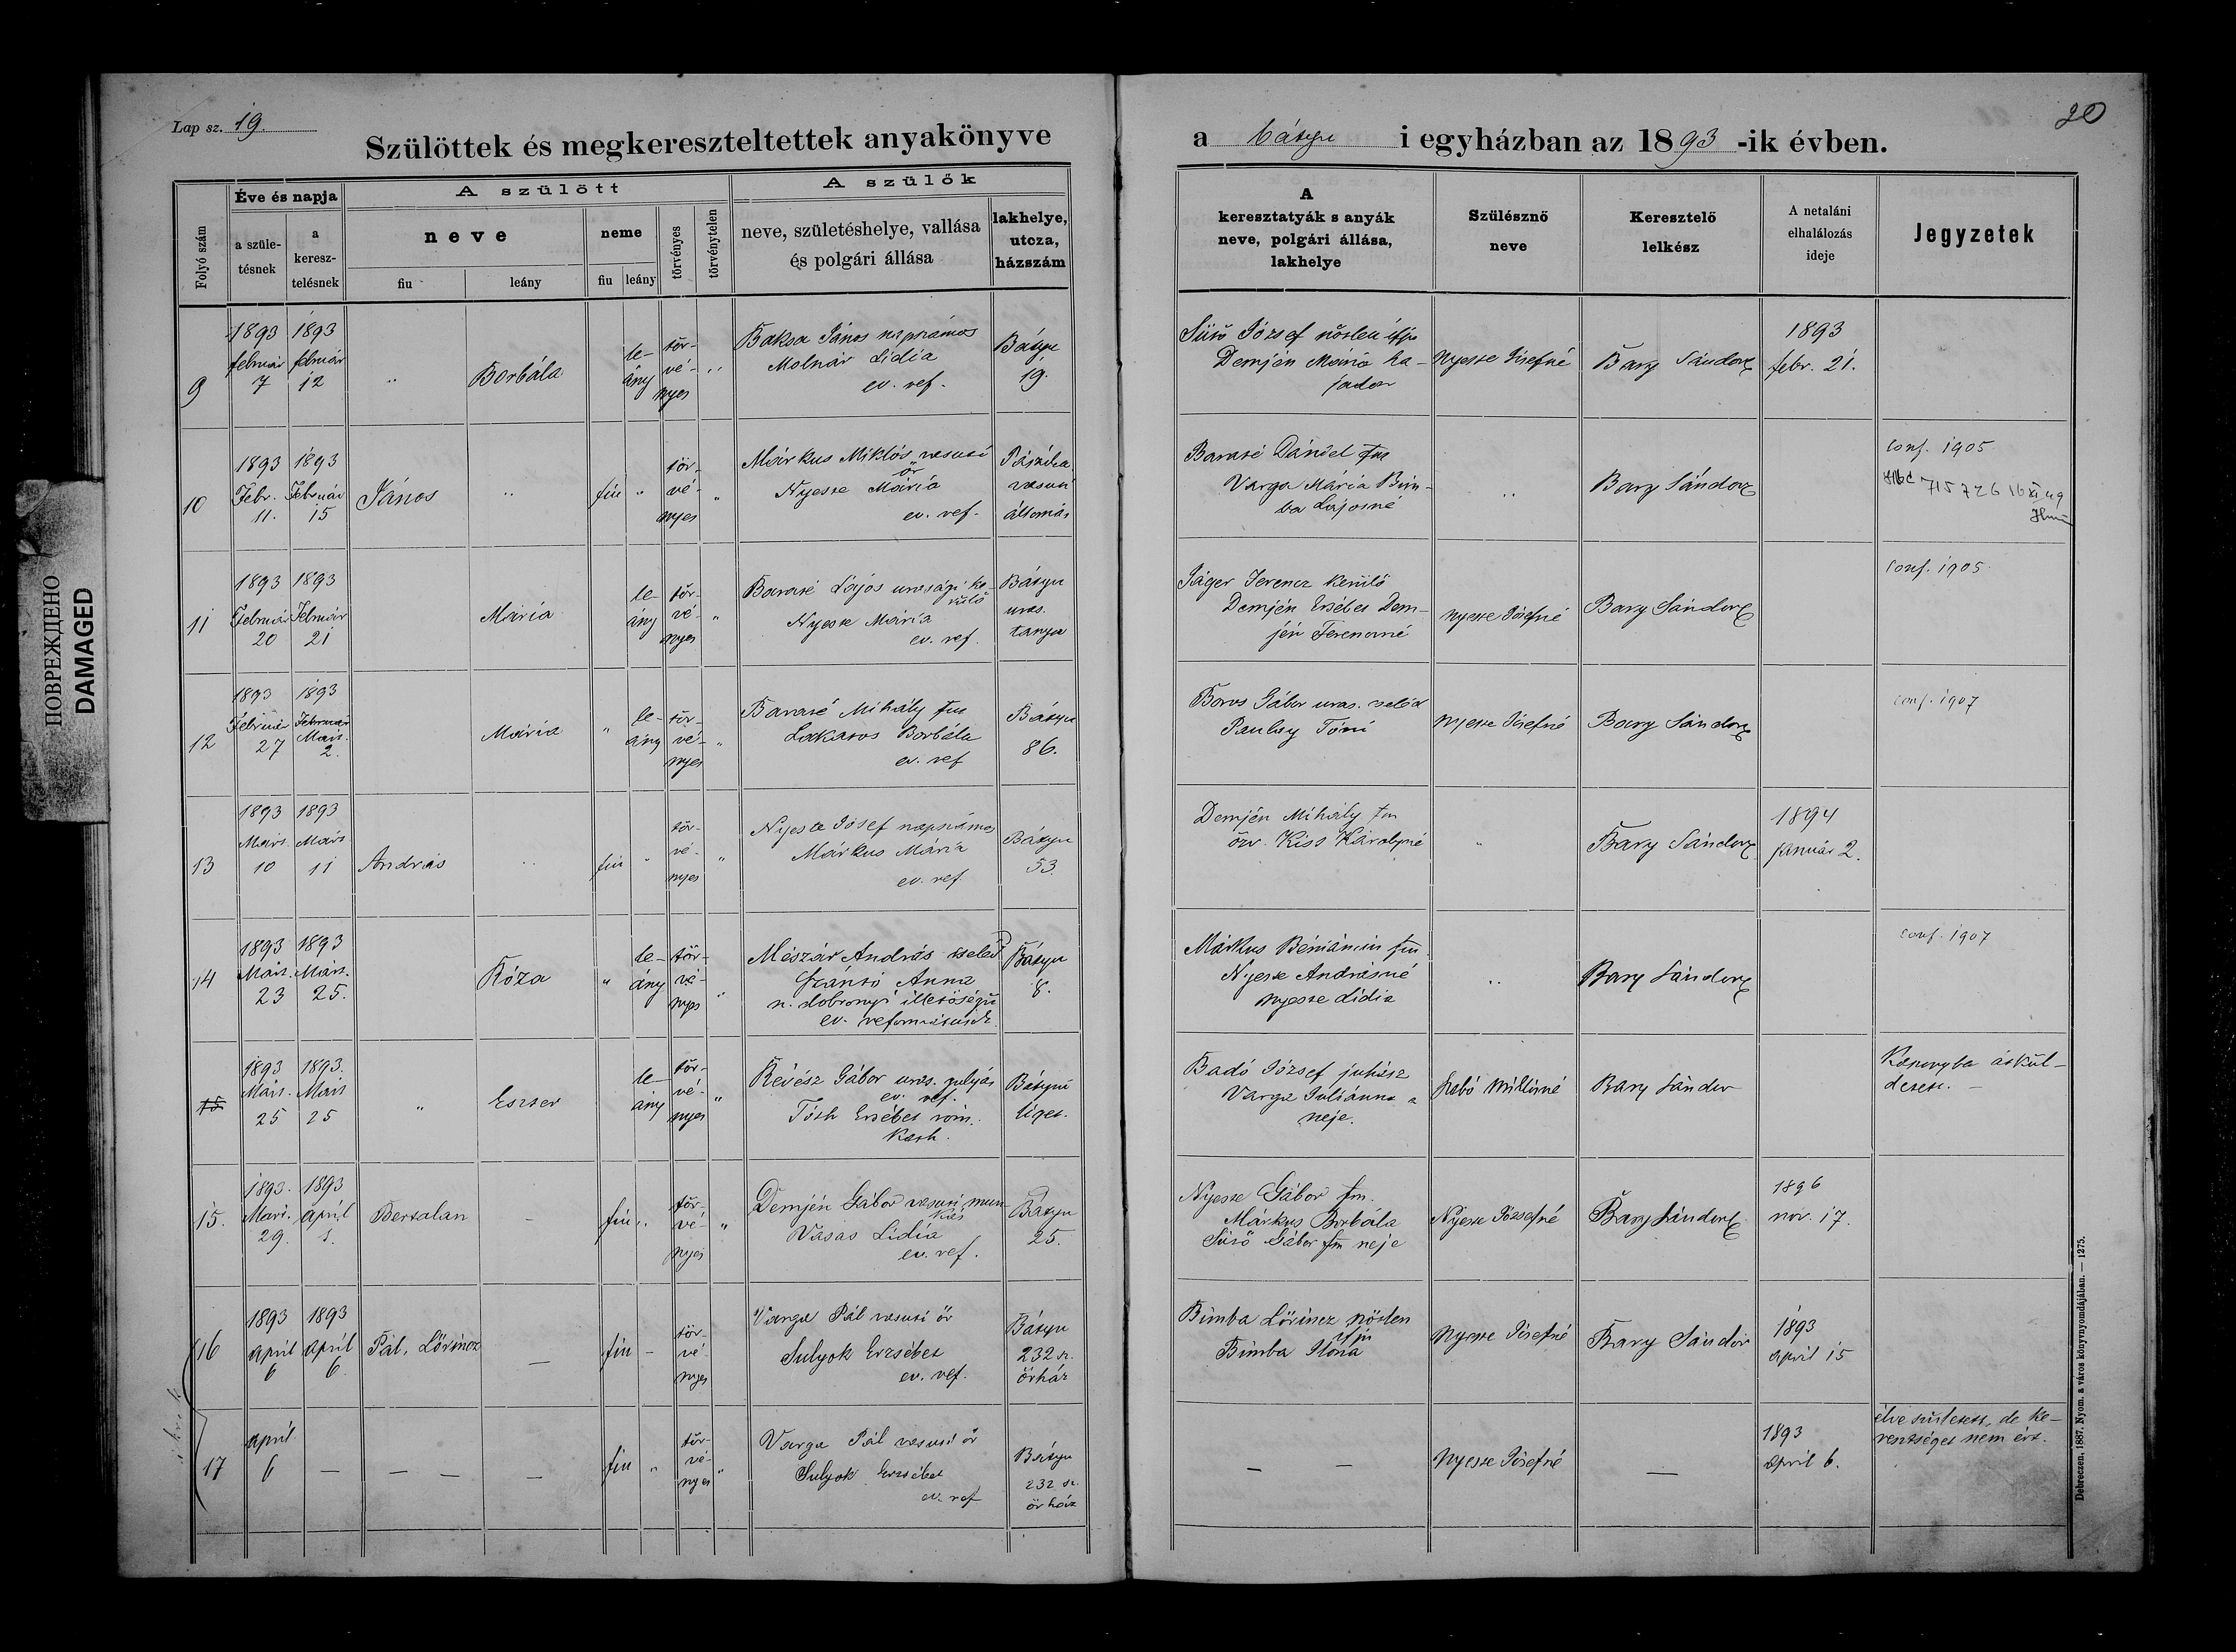 Lap sz. 19.
Szülöttek és megkereszteltettek anyakönyve
Folyó szám
Éve és napja
a születésnek
a keresztelésnek
A szülött
neve
fiu
leány
neme
fiu
leány
törvényes
törvénytelen
A szülők
neve, születéshelye, vallása
és polgári állása
lakhelye,
utcza,
házszám
a Bátyu i egyházban az 1893-ik évben.
20
A
keresztatyák s anyák
neve, polgári állása,
lakhelye
Szülésznő
neve
Keresztelő
lelkész
A netaláni
elhalálozás
ideje
Jegyzetek
9
1893 február 7
1893 február 12
"
Borbála
le-
ány
tör-
vé-
nyes
"
Baksa János napszámos
Molnár Lidia
ev. ref.
Bátyu
19.
Sütő József nőtlen ifju
Demjén Mária ha-
jadon
Nyeste Józefné
Bary Sándor
1893
febr. 21.
10
1893 Febr. 11.
1893 Február 15
János
"
fiu
"
tör-
vé-
nyes
"
Márkus Miklós vasuti
őr
Nyeste Mária
ev. ref.
vasuti
állomás
Baraté Dániel fm
Varga Mária Bim-
ba Lajosné
"
Bary Sándor
conf. 1905
715726 16 XI 49
11
1893 Február 20
1893 Február 21
Mária
le-
ány
tör-
vé-
nyes
"
Baraté Lajos urasági ke-
rülő
Nyeste Mária
ev. ref.
Bátyu
uras.
tanya
Jáger Ferencz kerülő
Demjén Erzébet Dem-
jén Ferenczné
Nyeste Józefné
Bary Sándor
conf. 1905
12
1893 Február 27
1893 Február Márs. 2.
Mária
"
le-
ány
tör-
vé-
nyes
"
Baraté Mihály fm
Lakatos Borbála
ev. ref
Bátyu
86.
Boros Gábor uras. cseléd
Paulay Tóni
Nyeste Józefné
Bary Sándor
conf. 1907
13
1893 Márs. 10
1893 Márs 11
András
"
fiu
"
tör-
vé-
nyes
"
Nyeste Józef napszámos
Márkus Mária
ev. ref.
Bátyu
53.
Demjén Mihály fm
özv. Kiss Károlyné
"
Bary Sándor
1894
január 2.
14
1893 Márs. 23
1893 Márs. 25.
Róza
"
le-
ány
tör-
vé-
nyes
"
Mészár András cseléd
Szántó Anna
n. dobronyi illetőségü
ev. reformátusok.
Bátyu
8.
Márkus Béniámin fm
Nyeste Andrásné
Nyeste Lidia
"
Bary Sándor
conf. 1907
15
1893 Márs. 25
1893. Márs 25
"
Eszter
le-
ány
tör-
vé-
nyes
"
Révész Gábor uras. gulyás
ev. ref.
Tóth Erzébet róm.
kath.
Bátyui
liget.
Badó József juhász
Varga Juliánna a
neje.
Bary Sándor
Kaszonyba átkül-
detett. –
15.
1893. Mars. 29.
1893 April 1.
Bertalan
–
fiu
"
tör-
vé-
nyes
"
Demjén Gábor vasuti mun
kás
Vasas Lidia
ev. ref.
Bátyu
25.
Nyeste Gábor fm.
Márkus Borbála
Sütő Gábor fm neje
Nyeste Józsefné
Bary Sándor
1896
nov. 17.
16
1893 April 6
1893 April 6.
Pál, Lőrincz
–
fiu
–
tör-
vé-
nyes
Varga Pál vasuti őr
Sulyok Erzsébet
ev. ref.
Bátyu
232 sz.
őrház
Bimba Lőrincz nőtlen
ifju
Bimba Ilona
Nyeste Józefné
Bary Sándor
1893
april 15
ikrek
17
April 6
–
–
–
–
–
fiu
"
tör-
vé-
nyes
"
Varga Pál vasuti őr
Sulyok Erzsébet
ev. ref
Bátyu
232 sz.
őrház
–
–
Nyeste Józefné
–
1893
april 6.
élve született, de ke-
resztséget nem ért.
Debreczen, 1887. Nyom. a város könyvnyomdájában. — 1275.
ПОВРЕЖДЕНО
DAMAGED